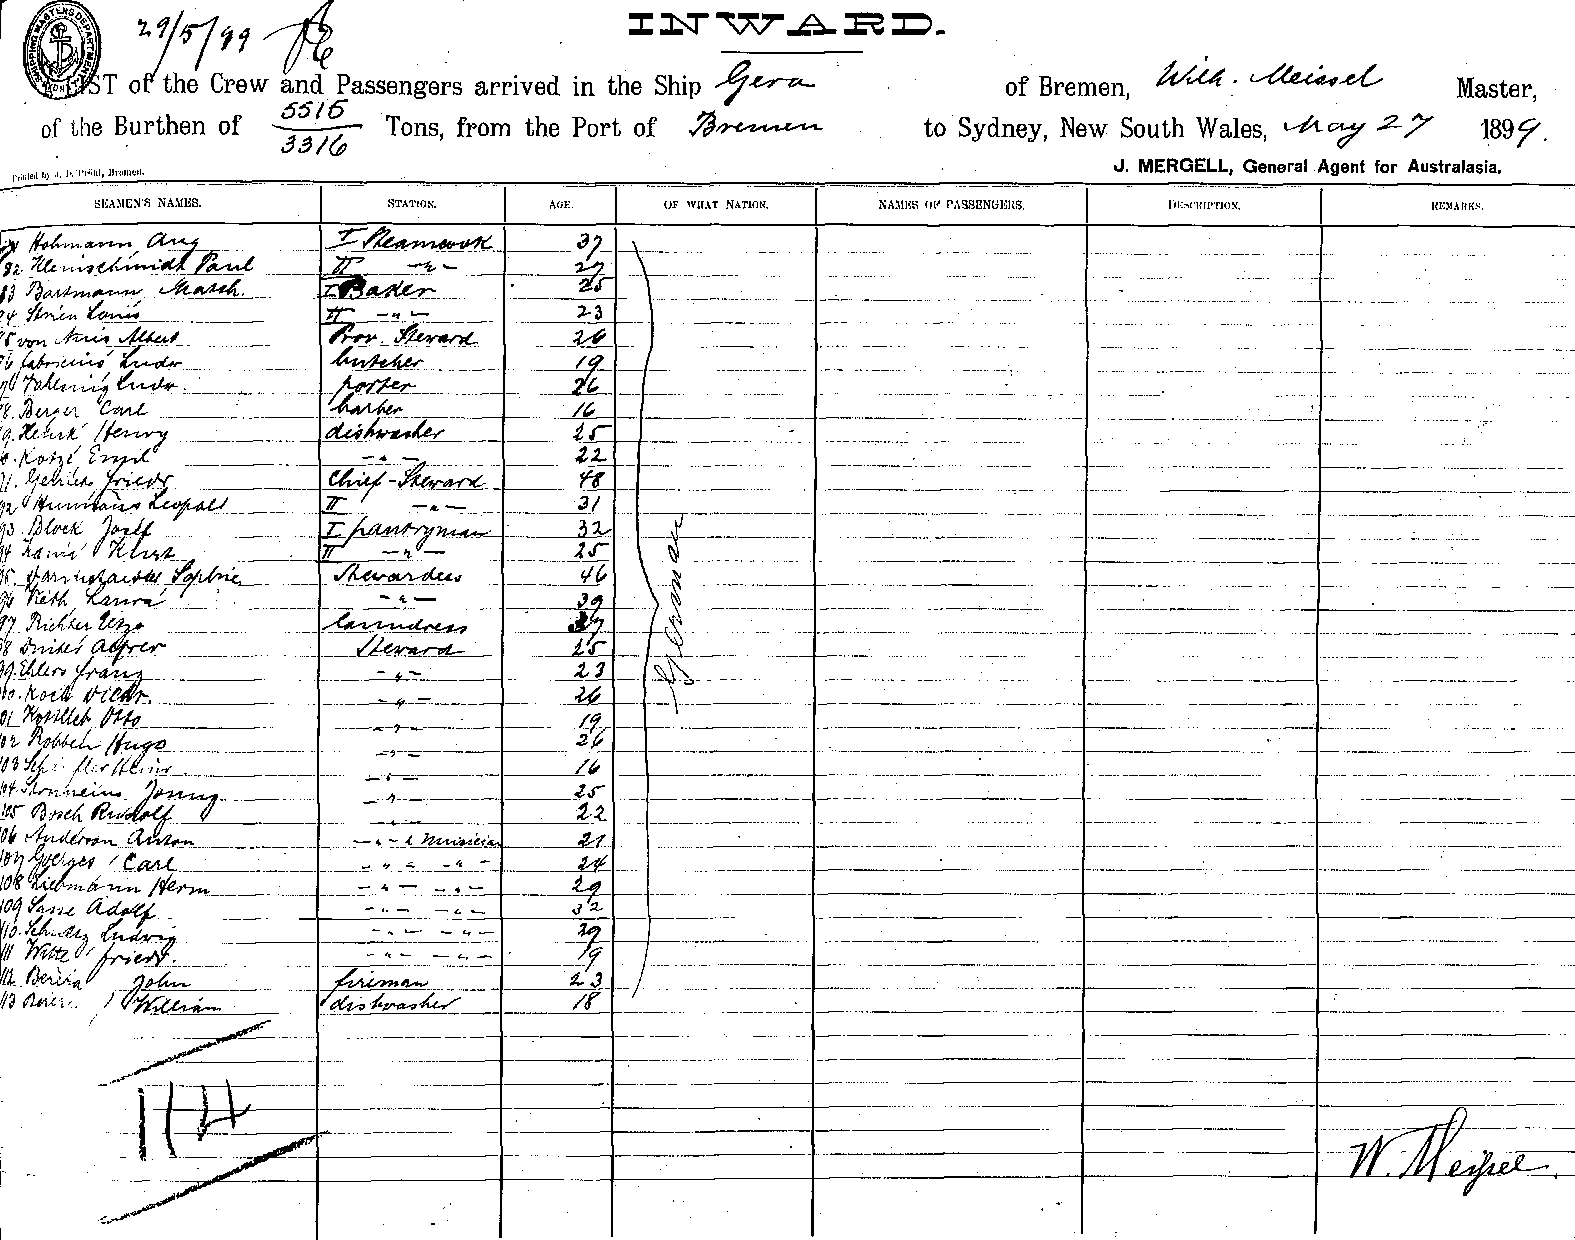 29/5/99
INWARD.
LIST of the Crew and Passengers arrived in the Ship Gera of Bremen, Wilh. Meissel Master,
of the Burthen of 5515 / 3316 Tons, from the Port of Bremen to Sydney, New South Wales, May 27 1899.
J. MERGELL, General Agent for Australasia.
SEAMEN'S NAMES. STATION. AGE. OF WHAT NATION. NAMES OF PASSENGERS. DESCRIPTION. REMARKS.
Hohmann Aug I Steamcook 37
82 Kleinschmidt Paul II -"- 27
83 Bartmann I Baker 25
84 Louis II -"- 23
85 von Albert Prov. Steward 26
86 Fabricius Ludw butcher 19
87 Ludw. porter 26
88. Berger Carl barber 16
89. Henry dishwasher 25
90. Emil -"- 22
91. Friedr Chief-Steward 48
92 Leopold II -"- 31
93 Block Josef I pantryman 32
94 Kurt II -"- 25
95. Sophie Stewardess 46
96 Laura -"- 39
97 Richter laundress
98 Alfred Steward 25
99. Ehlers Franz -"- 23
100. Koch -"- 26
101 Otto -"- 19
102 Robben Hugo -"- 26
103 Heinr. -"- 16
104 -"- 25
105 Bosch Rudolf -"- 22
106 Anderson Anton -"- & Musician 21
107 Goerges Carl -"- -"- 24
108 Liebmann Herm -"- -"- 29
109 Sasse Adolf -"- -"- 32
110. Schulz Ludwig -"- -"- 29
111 Witte Friedr. -"- -"- 19
112 John fireman 23
113 William dishwasher 18
German
114
W. Meissel.